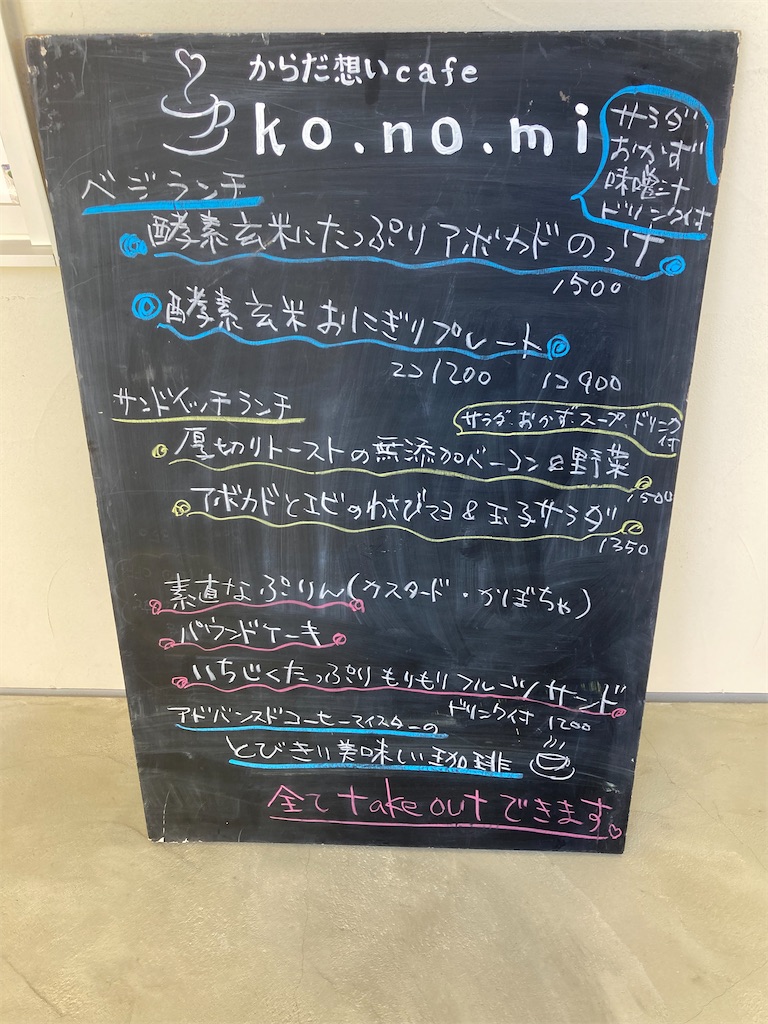 からだ想いcafe
ko.no.mi
サラダ
おかず
味噌汁
ドリンク付
ベジランチ
酵素玄米にたっぷりアボカドのっけ
1500
酵素玄米おにぎりプレート
2コ1200 1コ900
サンドイッチランチ
サラダ・おかず・スープ・ドリンク付
厚切りトーストの無添加ベーコン&野菜
1500
アボカドとエビのわさびマヨ&玉子サラダ
1350
素直なぷりん(カスタード・かぼちゃ)
パウンドケーキ
いちじくたっぷりもりもりフルーツサンド
ドリンク付 1200
アドバンスドコーヒーマイスターの
とびきり美味しい珈琲
全てtake outできます